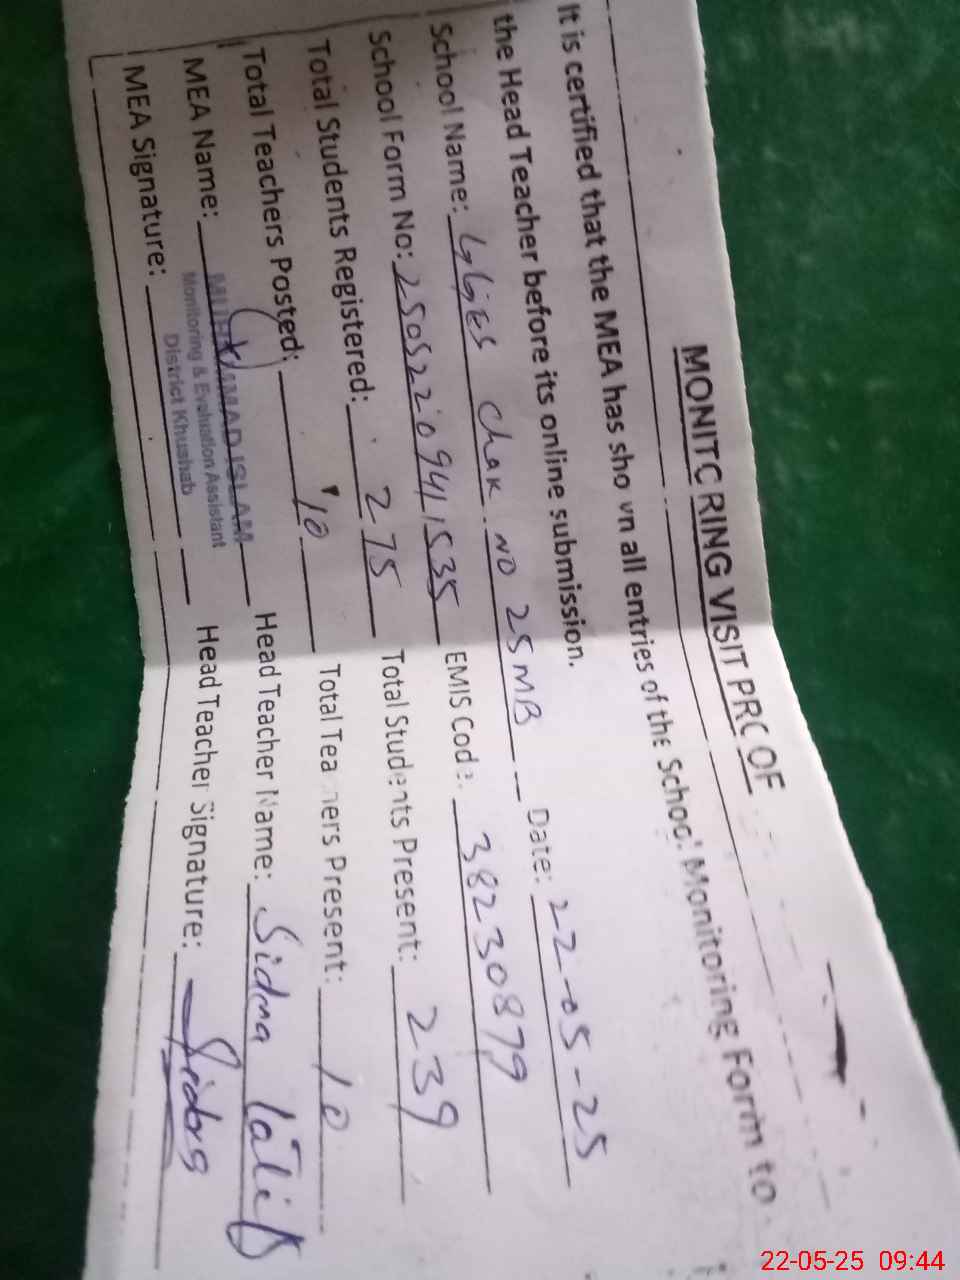 MONITORING VISIT PROOF
It is certified that the MEA has shown all entries of the School Monitoring Form to
the Head Teacher before its online submission.
School Name: GGES Chak NO 25 MB Date: 22-05-25
School Form No: 250522094153 5 EMIS Code: 38230879
Total Students Registered: 275 Total Students Present: 239
Total Teachers Posted: 10 Total Teachers Present: 10
MEA Name: MUHAMMAD ISLAM Head Teacher Name: Sidra latif
Monitoring & Evaluation Assistant
District Khushab
MEA Signature: Head Teacher Signature: Sidra
22-05-25 09:44